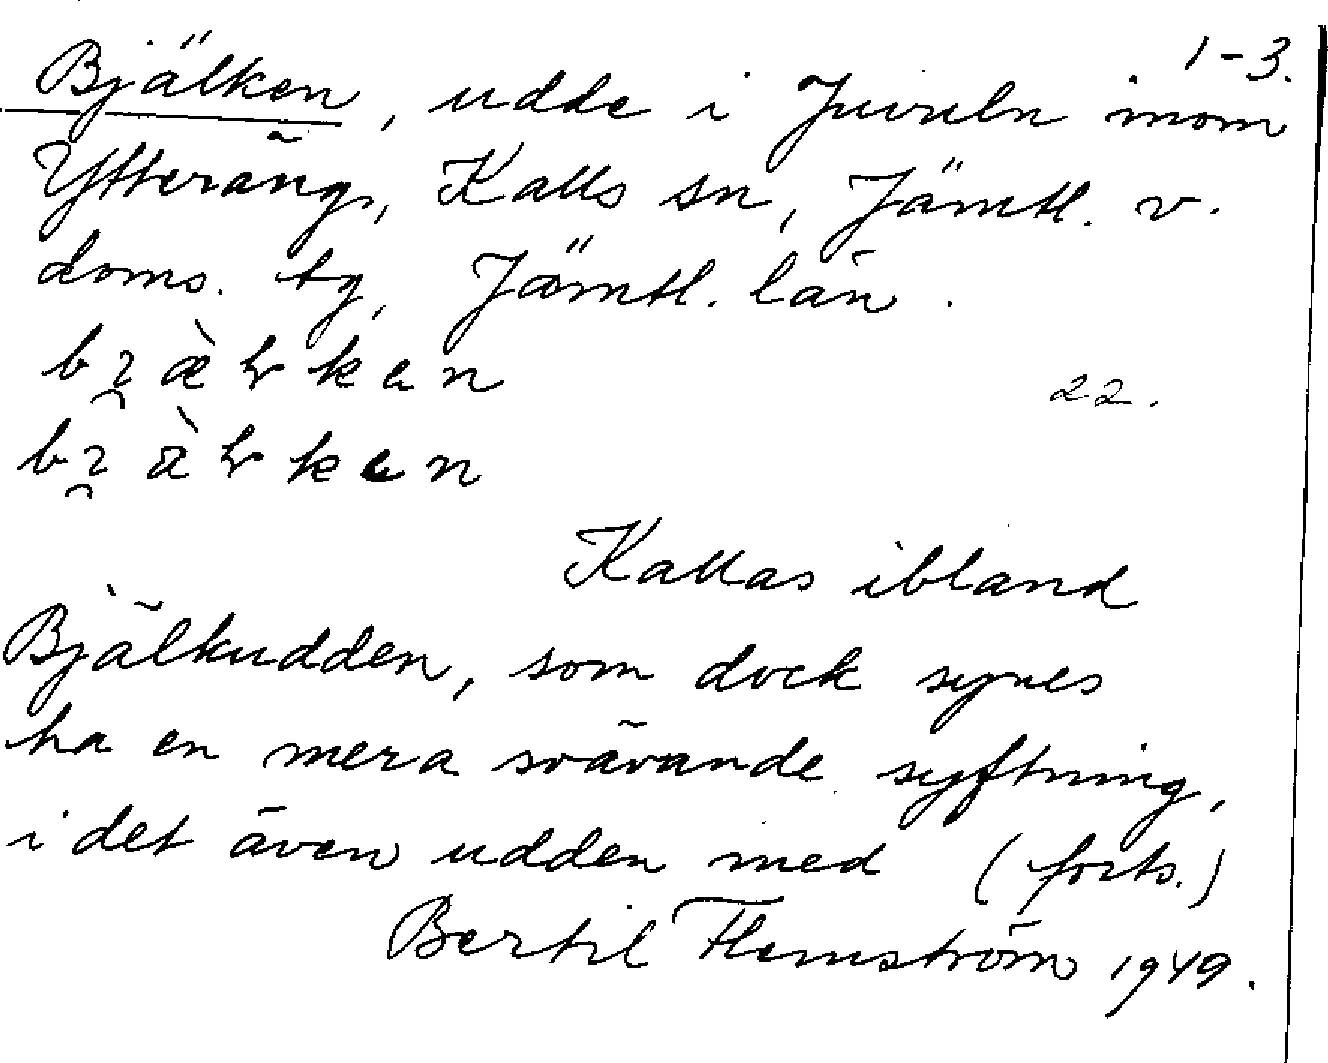 1-3.
Bjälken, udde i Juveln inom
Ytteräng, Kalls sn, Jämtl. v.
doms. tg, Jämtl. län.
22.
Kallas ibland
Bjälkudden, som dock synes
ha en mera svävande syftning,
i det även udden med (forts.)
Bertil Flemström 1949.